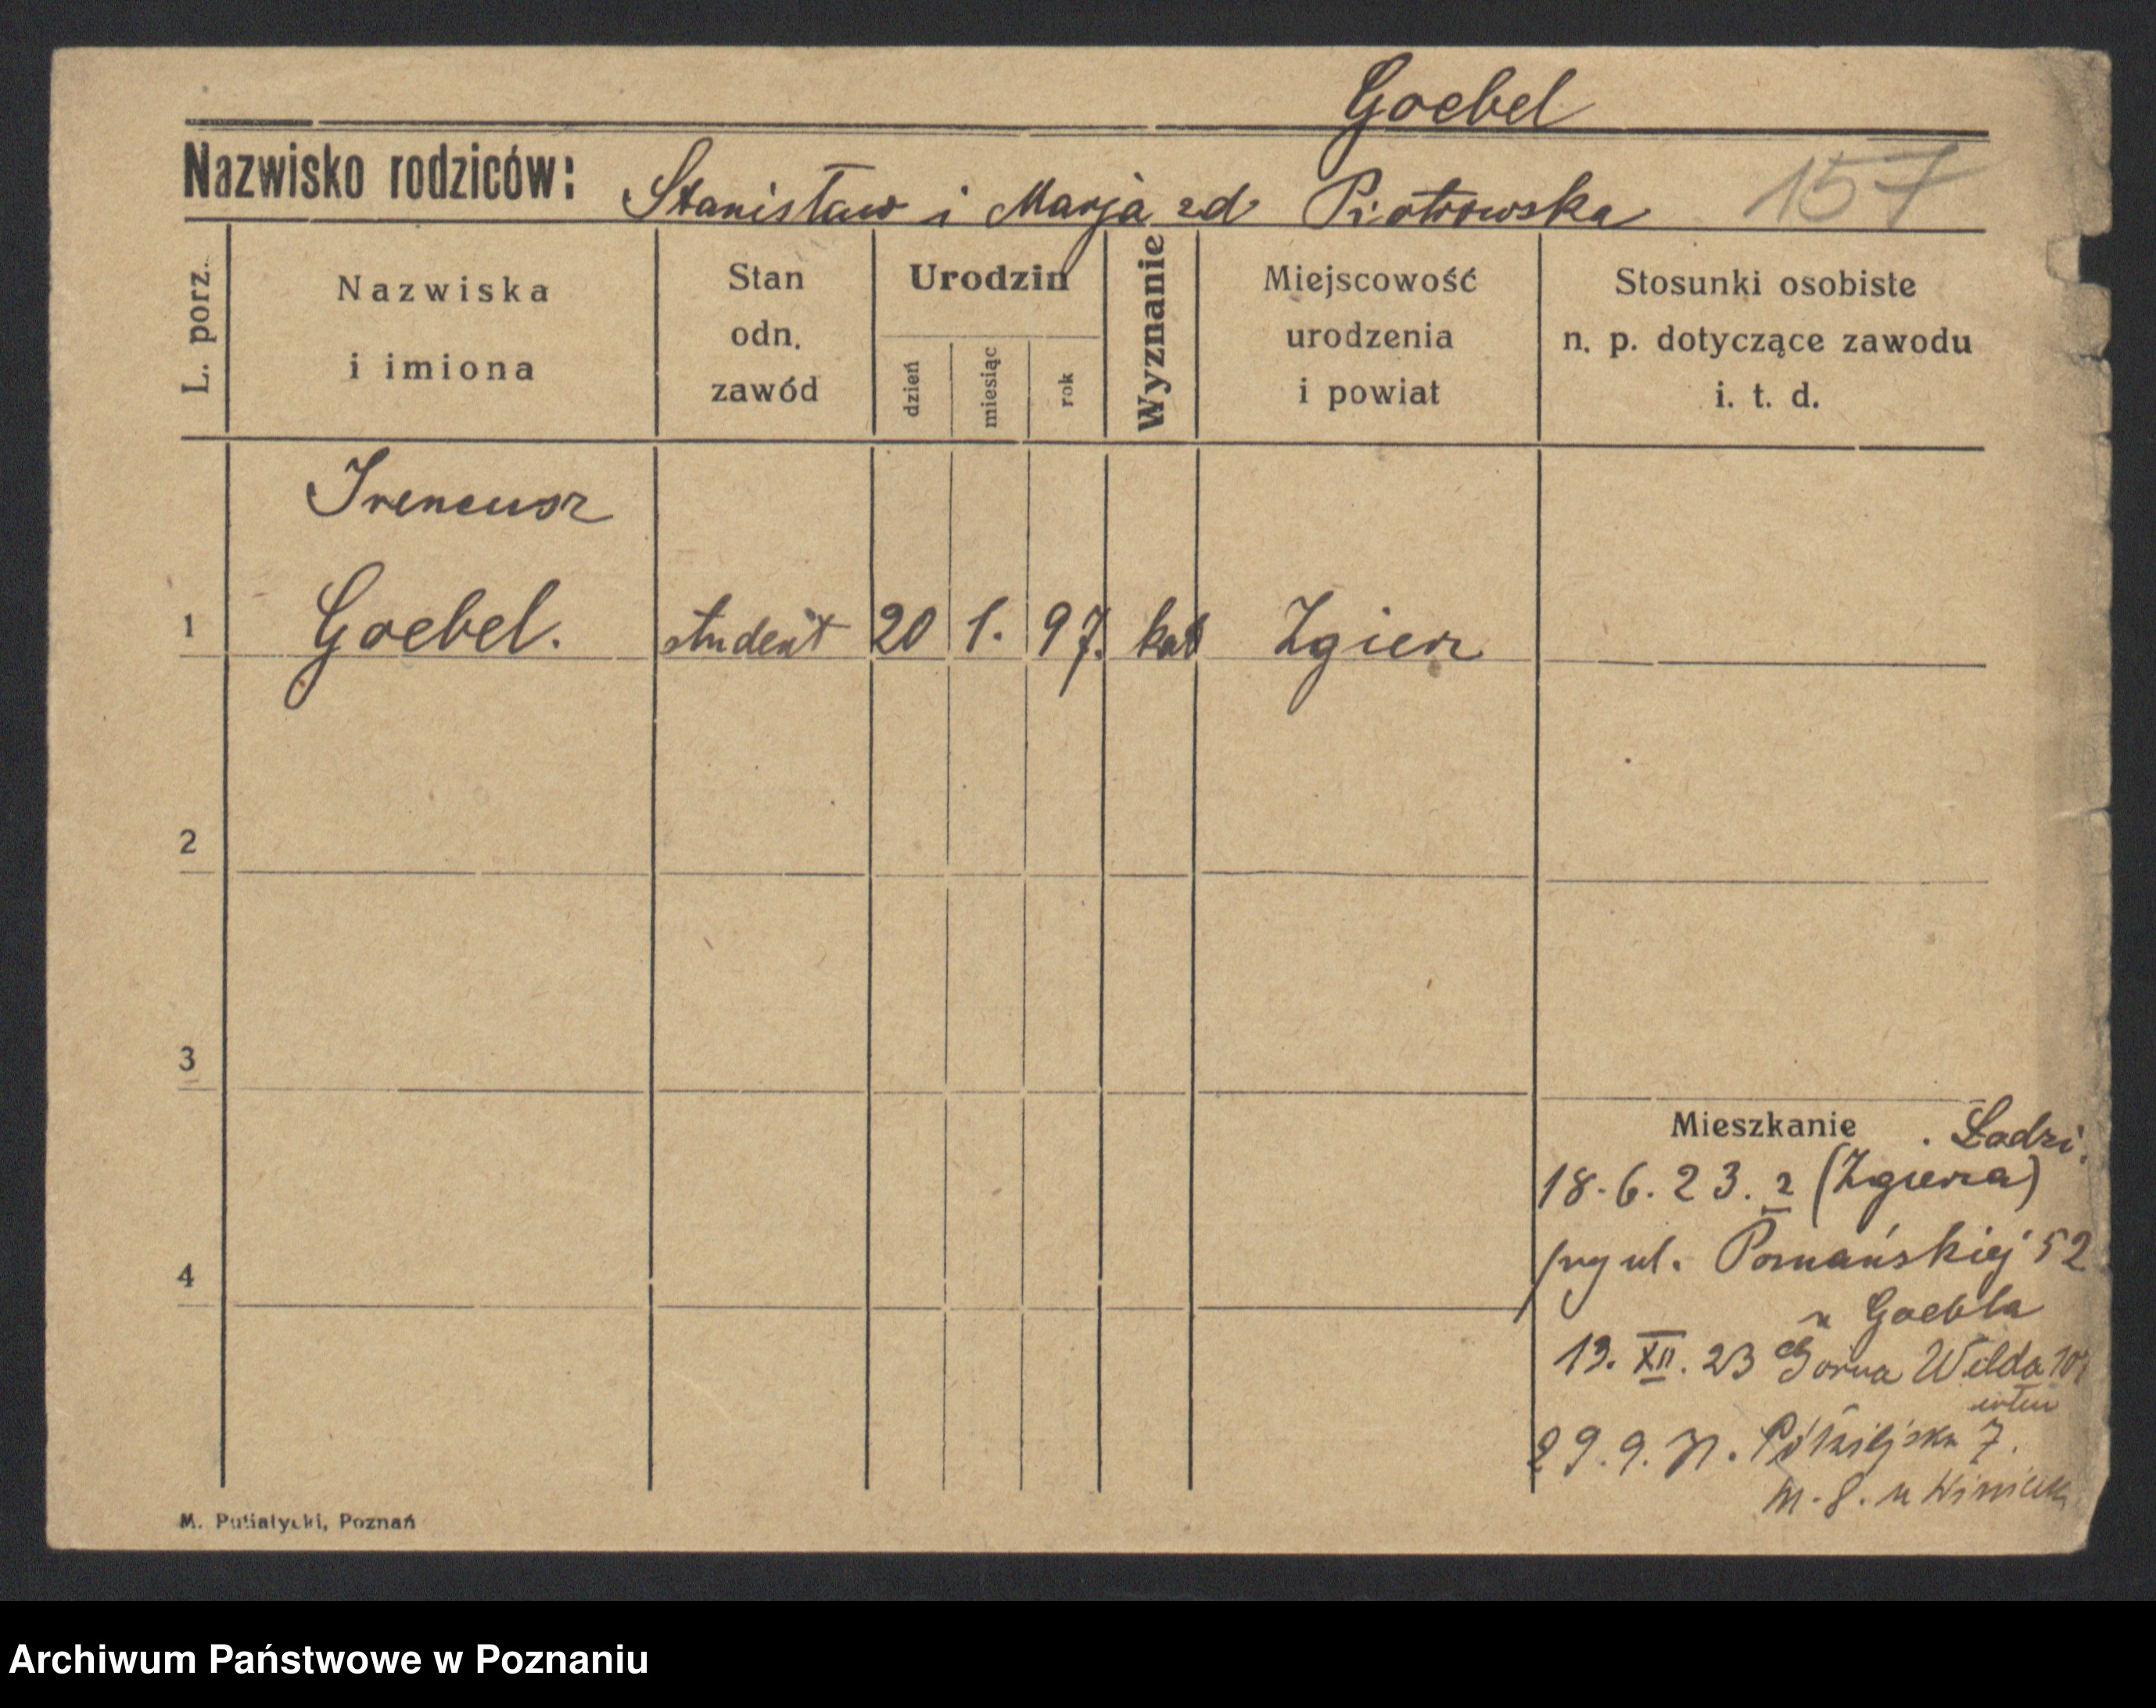 Goebel
Nazwisko rodziców: Stanisław i Marja zd Piotrowska 157
L. porz.
Nazwiska
i imiona
Stan
odn.
zawód
Urodzin
dzień
miesiąc
rok
Wyznanie
Miejscowość
urodzenia
i powiat
Stosunki osobiste
n. p. dotyczące zawodu
i. t. d.
Ireneusz
1 Goebel. student 20 1. 97. kat Zgierz
2
3
Mieszkanie . Łodzi.
18.6.23. z (Zgierza)
4
przy ul. Poznańskiej 52
u Goebla
13. XII. 23 Gorna Wilda
29.9. 7.
m. 8. u
M. Putiatycki, Poznań
Archiwum Państwowe w Poznaniu